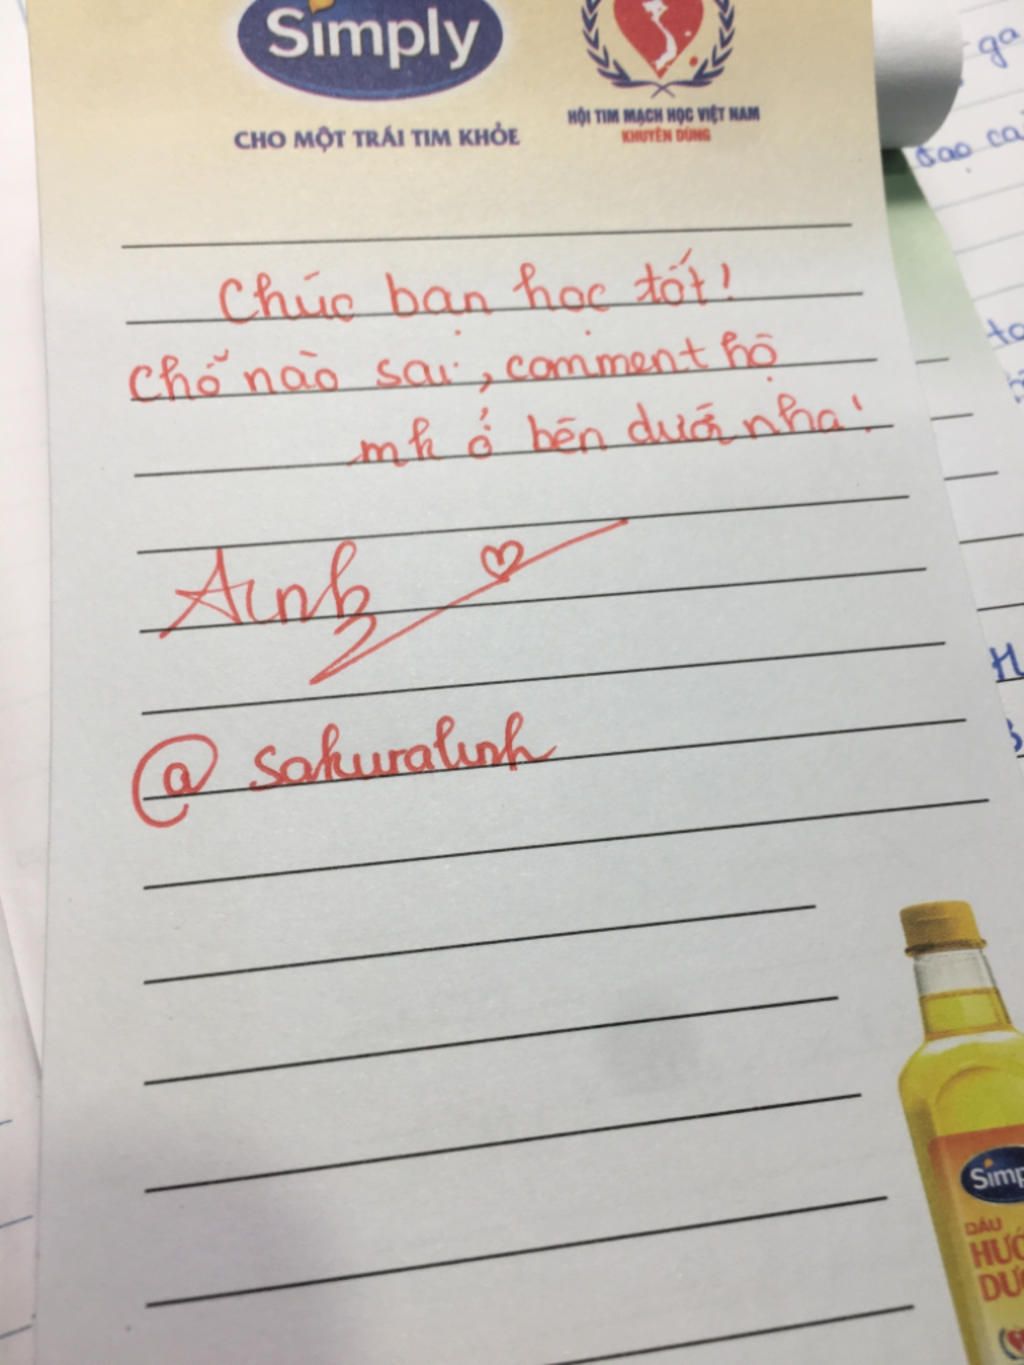 Simply
CHO MỘT TRÁI TIM KHỎE
HỘI TIM MẠCH HỌC VIỆT NAM
KHUYÊN DÙNG
Chúc bạn học tốt!
Chỗ nào sai, comment hộ
mk ở bên dưới nha!
Linh
@ sakuralinh
ga
sao
Simp
DẦU
HƯỚ
DƯ